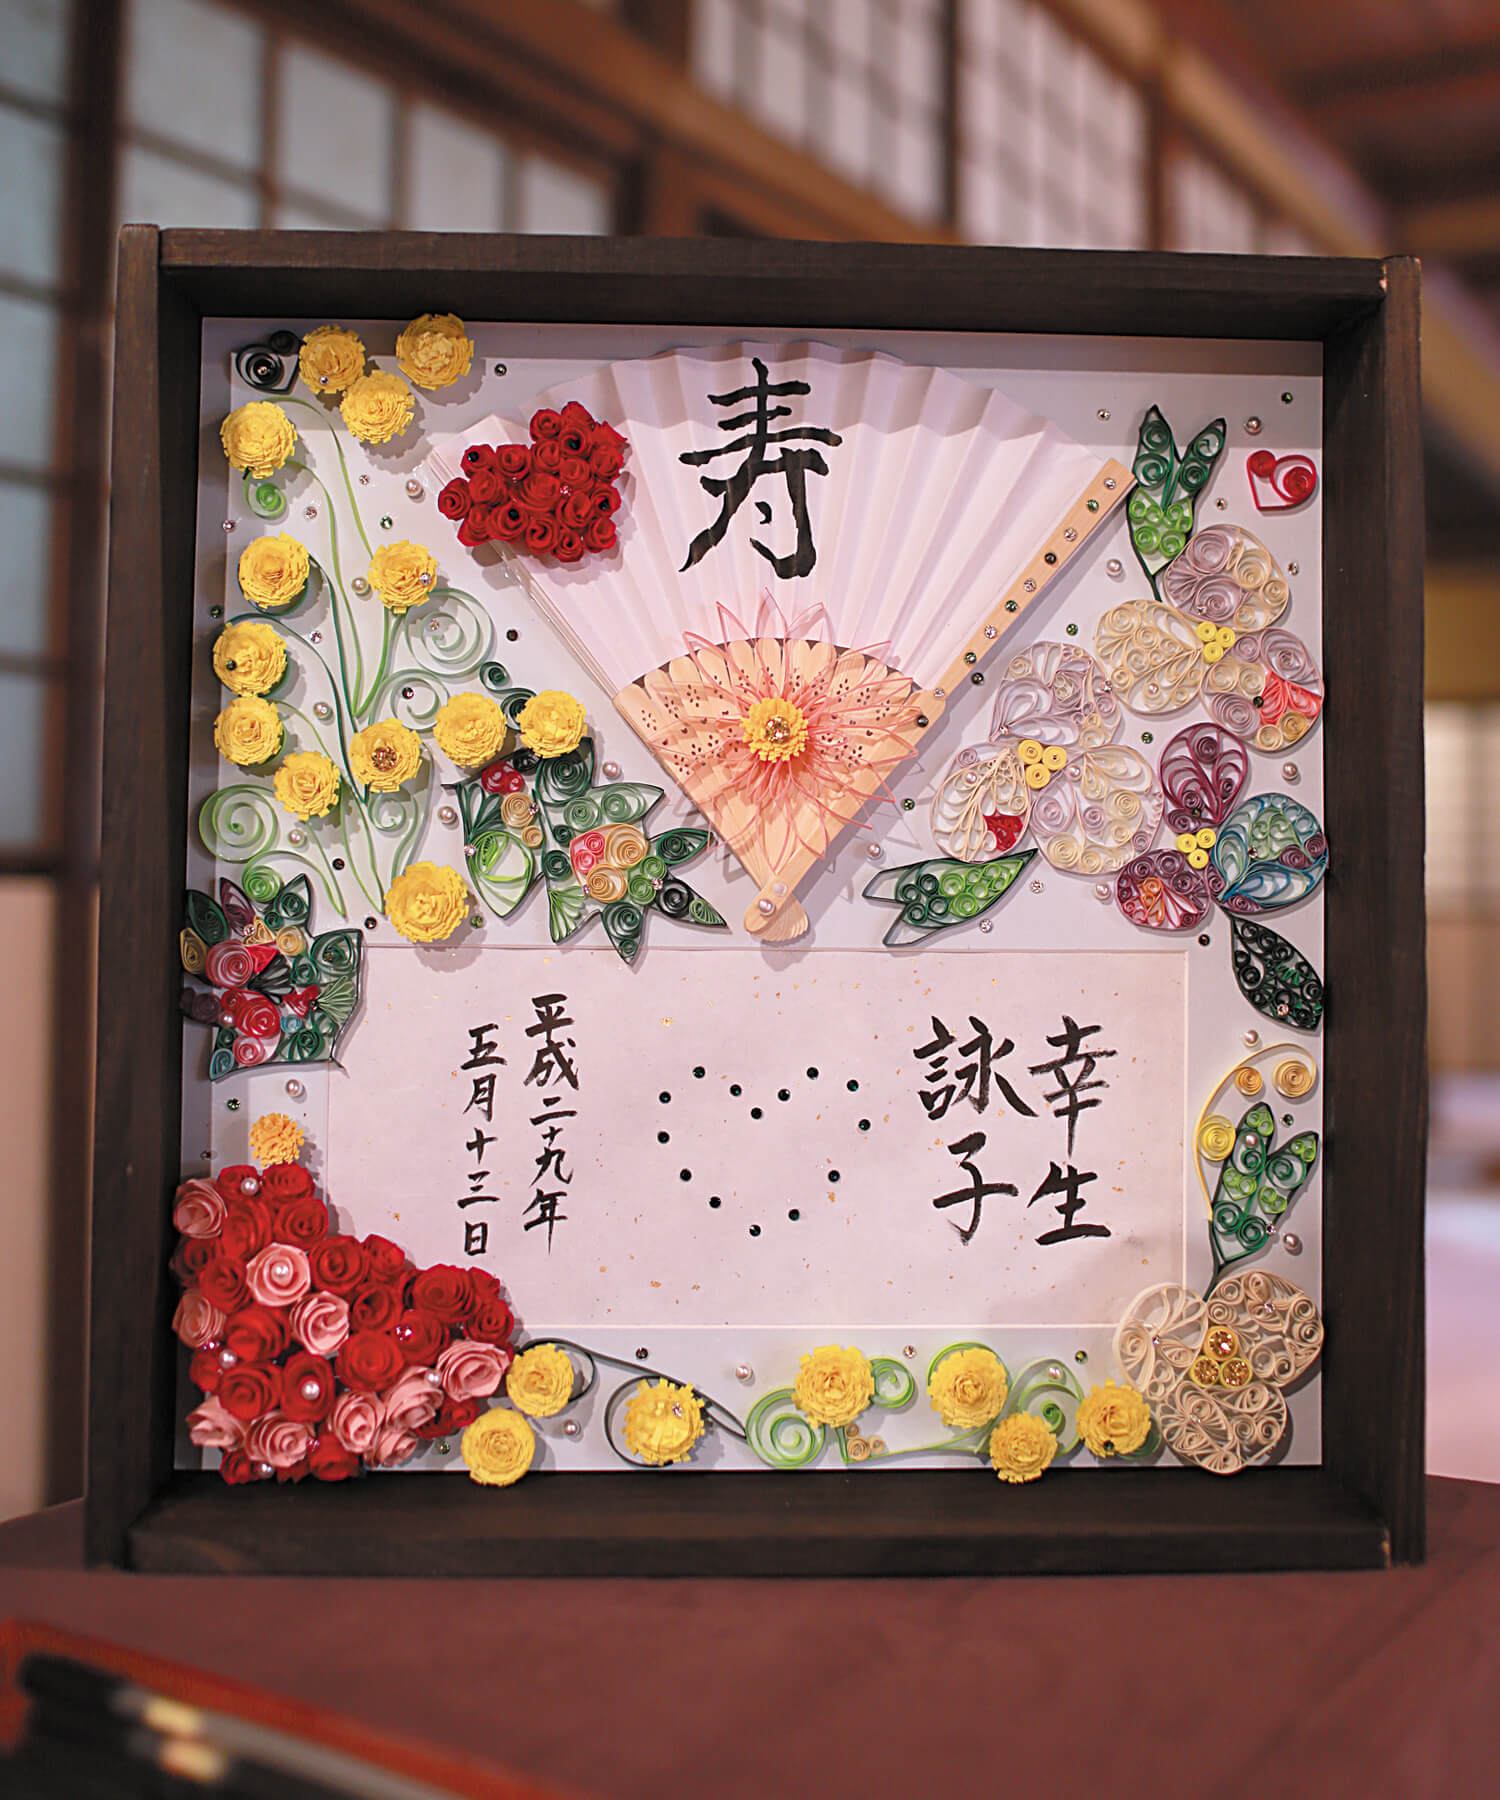 寿
幸生
詠子
平成二十九年
五月十三日